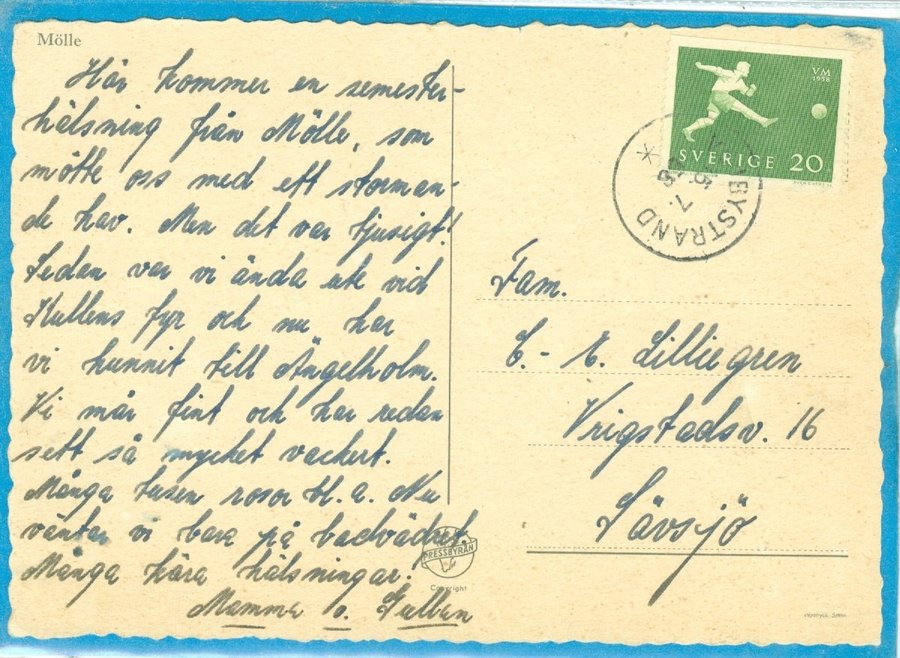 Mölle
Här kommer en semester-
hälsning från Mölle, som
mötte oss med ett storman-
de hav. Men det var tjusigt!
Sedan var vi ända ute vid
Kullens fyr och nu har
vi hunnit till Ängelholm.
Vi mår fint och har redan
sett så mycket vackert.
Många tusen rosor bl. a. Nu
väntar vi bara på badvädret.
Många kära hälsningar.
Mamma o. Gullan
VM
1958
SVERIGE 20
BYSTRAND
7.
Fam.
C.-E. Lilliegren
Vrigstadsv. 16
Sävsjö
PRESSBYRÅN
Copyright